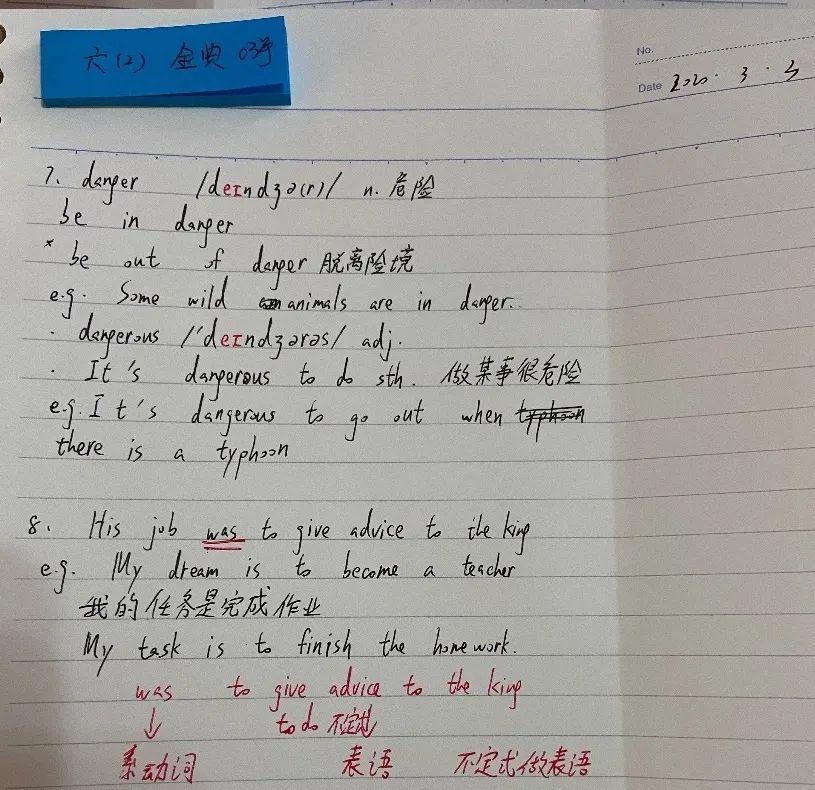 六(2) 金典 03号
No.
Date 2020 . 3 . 3
7. danger /deɪndʒə(r)/ n. 危险
be in danger
* be out of danger 脱离险境
e.g. Some wild animals are in danger.
· dangerous /'deɪndʒərəs/ adj.
· It's dangerous to do sth. 做某事很危险
e.g. It's dangerous to go out when typhoon
there is a typhoon
8. His job was to give advice to the king
e.g. My dream is to become a teacher
我的任务是完成作业
My task is to finish the homework.
was to give advice to the king
↓ to do 不定式
系动词 表语 不定式做表语